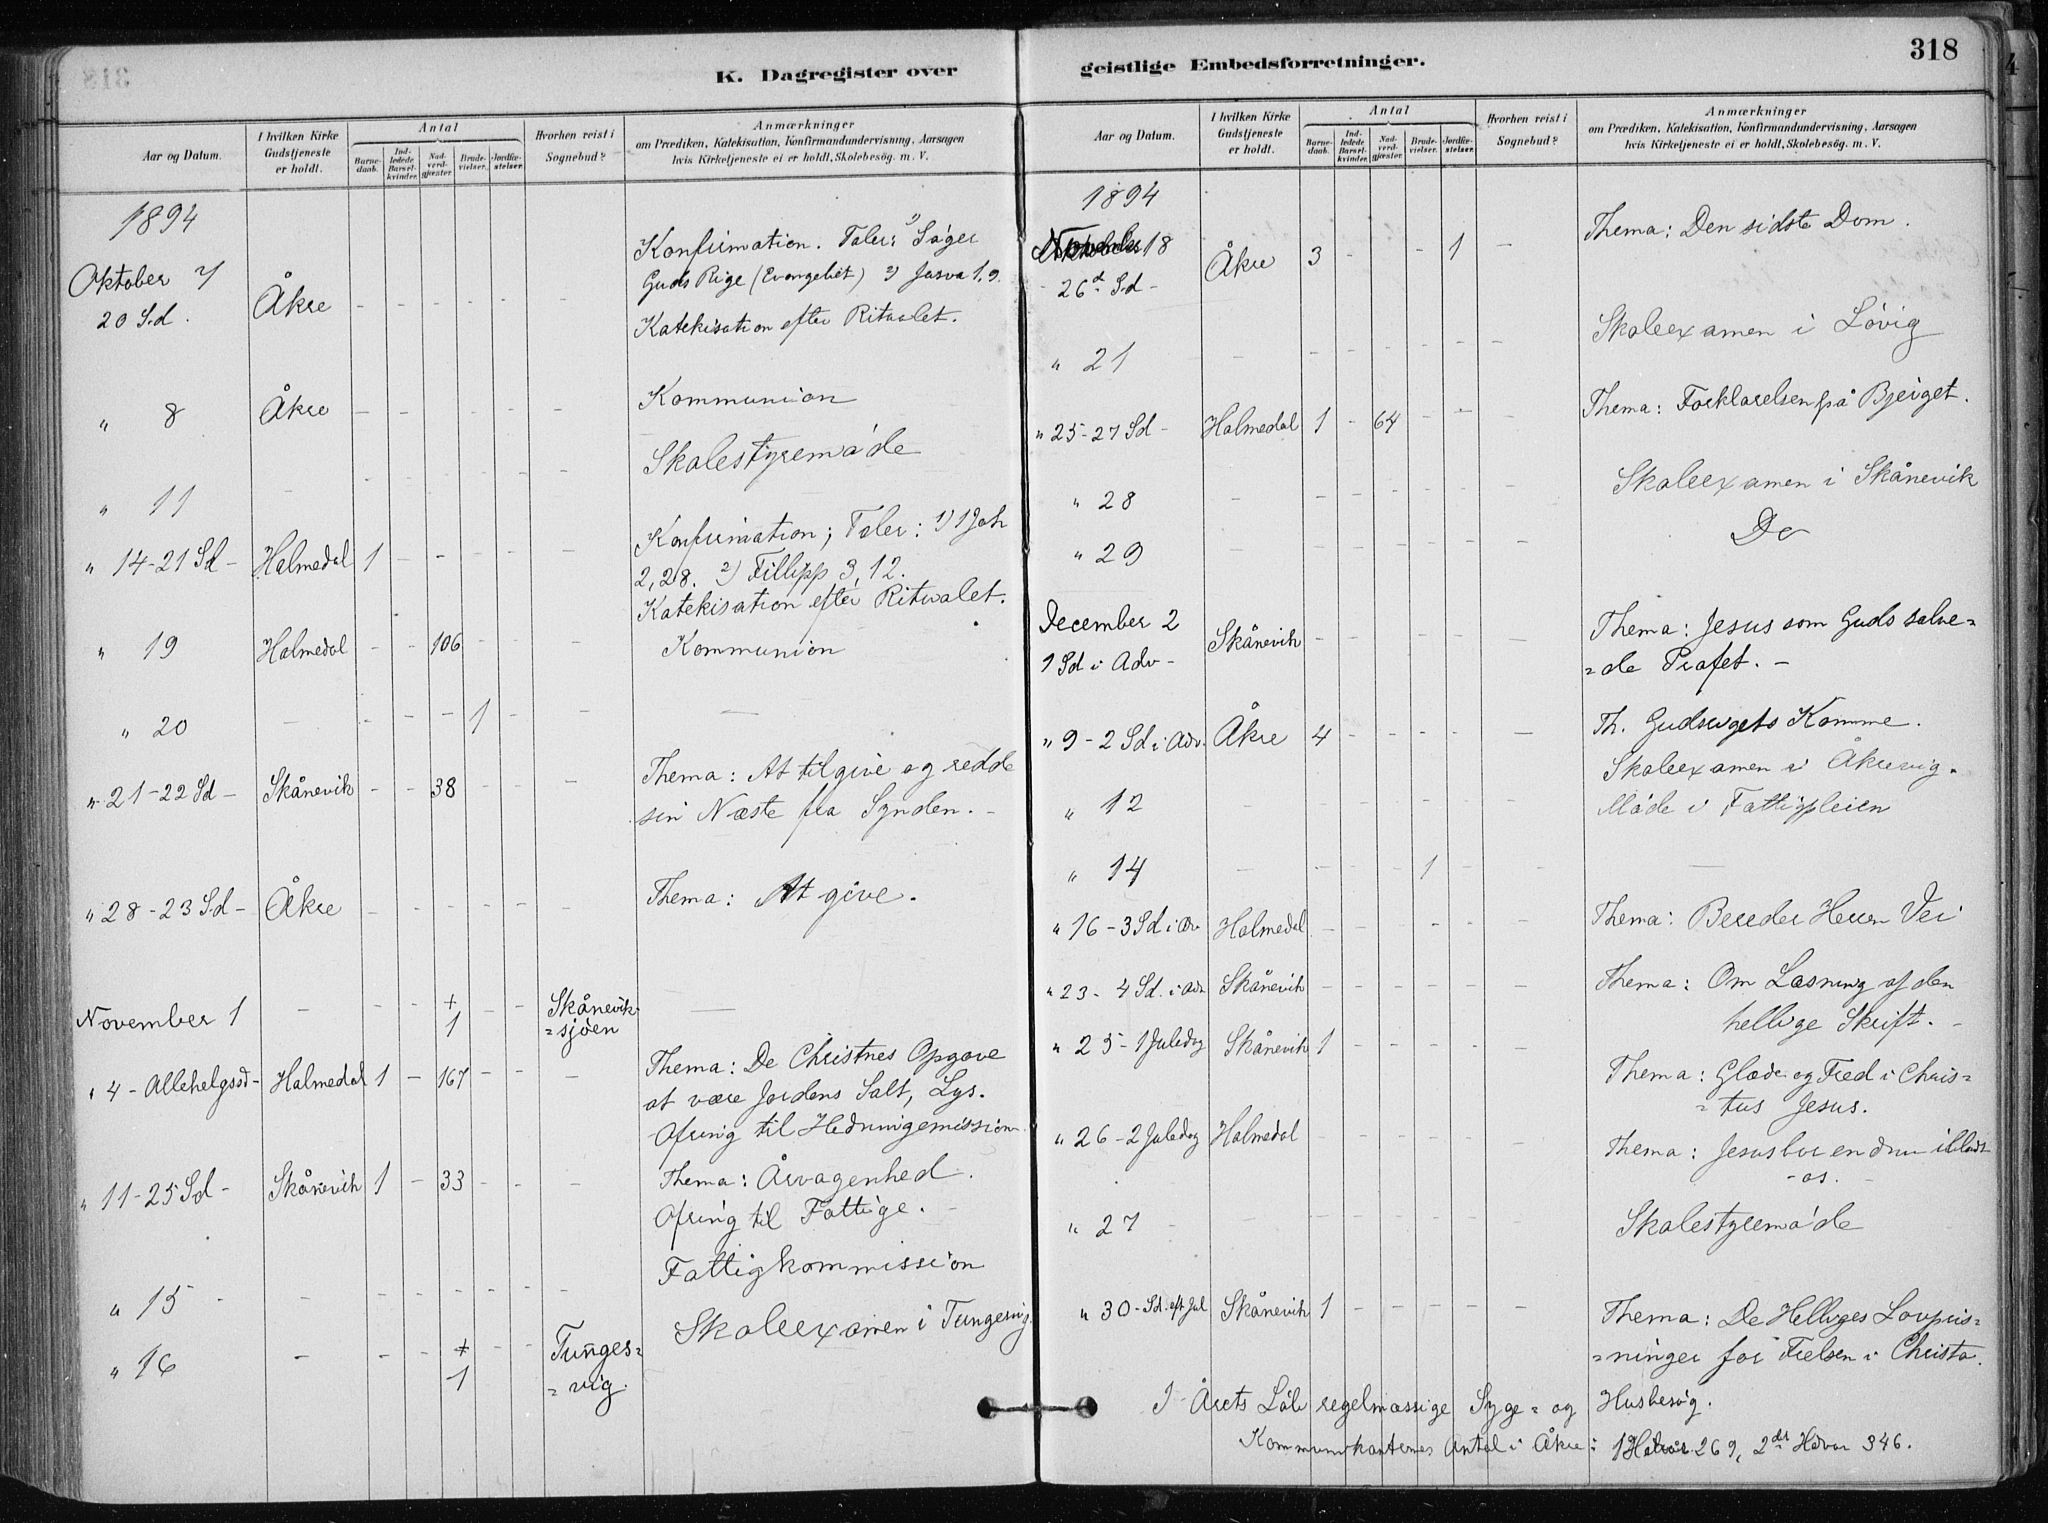 K. Dagregister over
Aar og Datum.
I hvilken Kirke Gudstjeneste er holdt.
Antal
Barnedaab.
Indledede Barselkvinder.
Nadverdgjæster.
Brudevielser.
Jordfæstelser.
Hvorhen reist i Sognebud?
Anmærkninger
om Prædiken, Katekisation, Konfirmandundervisning, Aarsagen
hvis Kirketjeneste ei er holdt, Skolebesög m. V.
1894
Oktober 7 Åkre - - - - - - Konfirmation. Taler: 1) Søger
20 S.d. Guds Rige (Evangeliet) 2) Josva 1,9.
Katekisation efter Ritualet.
" 8 Åkre - - - - - - Kommunion
" 11 - - - - - - - Skolestyremøde
" 14-21 Sd- Halmedal 1 - - - - - Konfirmation; Taler: 1) 1 Joh
2,28. 2) Fillipp 3,12.
Katekisation efter Ritualet.
" 19 Halmedal - - 106 - - - Kommunion
" 20 - - - - 1 - - -
" 21-22 Sd- Skånevik - - 38 - - - Thema: At tilgive og redde
sin Næste fra Synden. -
" 28-23 Sd- Åkre - - - - - - Thema: At give.
November 1 - - - + 1 - - Skånevik=
=sjøen -
" 4-Allehelgsd- Halmedal 1 - 167 - - - Thema: De Christnes Opgave
at være Jordens Salt, Lys.
Ofring til Hedningemission
" 11-25 Sd- Skånevik 1 - 33 - - - Thema: Årvagenhed.
Ofring til Fattige. -
" 15 - - - - - - - - Fattigkommission
" 16 - - - + 1 - - Tunges=
=vig. Skoleexamen i Tungesvig.
geistlige Embedsforretninger.
318
Aar og Datum.
I hvilken Kirke Gudstjeneste er holdt.
Antal
Barnedaab.
Indledede Barselkvinder.
Nadverdgjæster.
Brudevielser.
Jordfæstelser.
Hvorhen reist i Sognebud?
Anmærkninger
om Prædiken, Katekisation, Konfirmandundervisning, Aarsagen
hvis Kirketjeneste ei er holdt, Skolebesög m. V.
1894
November 18 Åkre 3 - - - 1 - Thema: Den sidste Dom.
- 26d Sd -
" 21 - - - - - - - Skoleexamen i Løvig
" 25-27 Sd- Halmedal 1 - 64 - - - Thema: Forklarelsen på Bjerget.
" 28 - - - - - - - Skoleexamen i Skånevik
" 29 - - - - - - - Do
December 2 Skånevik - - - - - - Thema: Jesus som Guds salve=
1 Sd i Adv- =de Profet. -
" 9-2 Sd i Adv. Åkre 4 - - - - - Th. Gudsrigets Komme.
Skoleexamen i Åkrevig.
" 12 - - - - - - - Møde i Fattigpleien
" 14 - - - - 1 - - -
" 16-3 Sd i Adv Halmedal - - - - - - Thema: Bereder Herren Vei
" 23-4 Sd. i Adv Skånevik - - - - - - Thema: Om Læsning af den
hellige Skrift. -
" 25-1 Juledag Skånevik 1 - - - - - Thema: Glæde og Fred i Chris=
=tus Jesus.
" 26-2 Juledag Halmedal - - - - - - Thema: Jesus bor endnu iblandt
-os. -
" 27 - - - - - - - Skolestyremøde
" 30-Sd. eft Jul Skånevik 1 - - - - - Thema: De Helliges Lovpris=
=ninger for Frelsen i Christo.
I Årets Løb regelmæssige Syge= og Husbesøg.
Kommunikanternes Antal i Åkre: 1 Halvår 269, 2det Halvår 346.